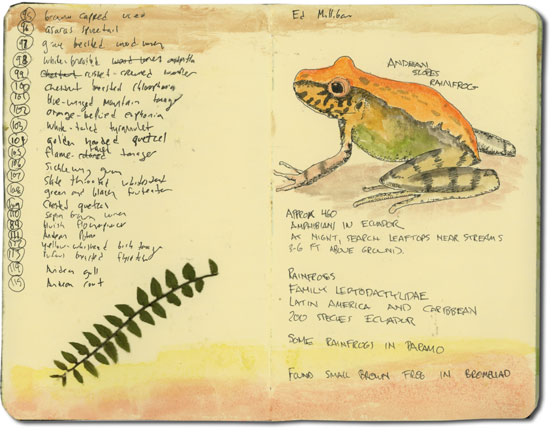 95 brown capped vireo
96 azaras spinetail
97 gray breasted wood wren
98 white-breasted wood wren
99 russet-crowned warbler
100 chestnut breasted chlorophonia
101 blue-winged mountain tanager
102 orange-bellied euphonia
103 white-tailed tyrannulet
104 golden headed quetzal
105 flame-faced tanager
106 sicklewing guan
107 slate throated whitestart
108 green and black fruiteater
109 crested quetzal
110 sepia brown wren
bluish flowerpiercer
Andean
yellow-whiskered bush tanager
breasted flycatcher
Andean gull
Andean coot
Ed Mulligan
ANDEAN
SLOPES
RAINFROG
APPROX 460
AMPHIBIANS IN ECUADOR
AT NIGHT, SEARCH LEAFTOPS NEAR STREAMS
3-6 FT ABOVE GROUND.
RAINFROGS
FAMILY LEPTODACTYLIDAE
LATIN AMERICA AND CARIBBEAN
200 SPECIES ECUADOR
SOME RAINFROGS IN PARAMO
FOUND SMALL BROWN FROG IN BROMELIAD